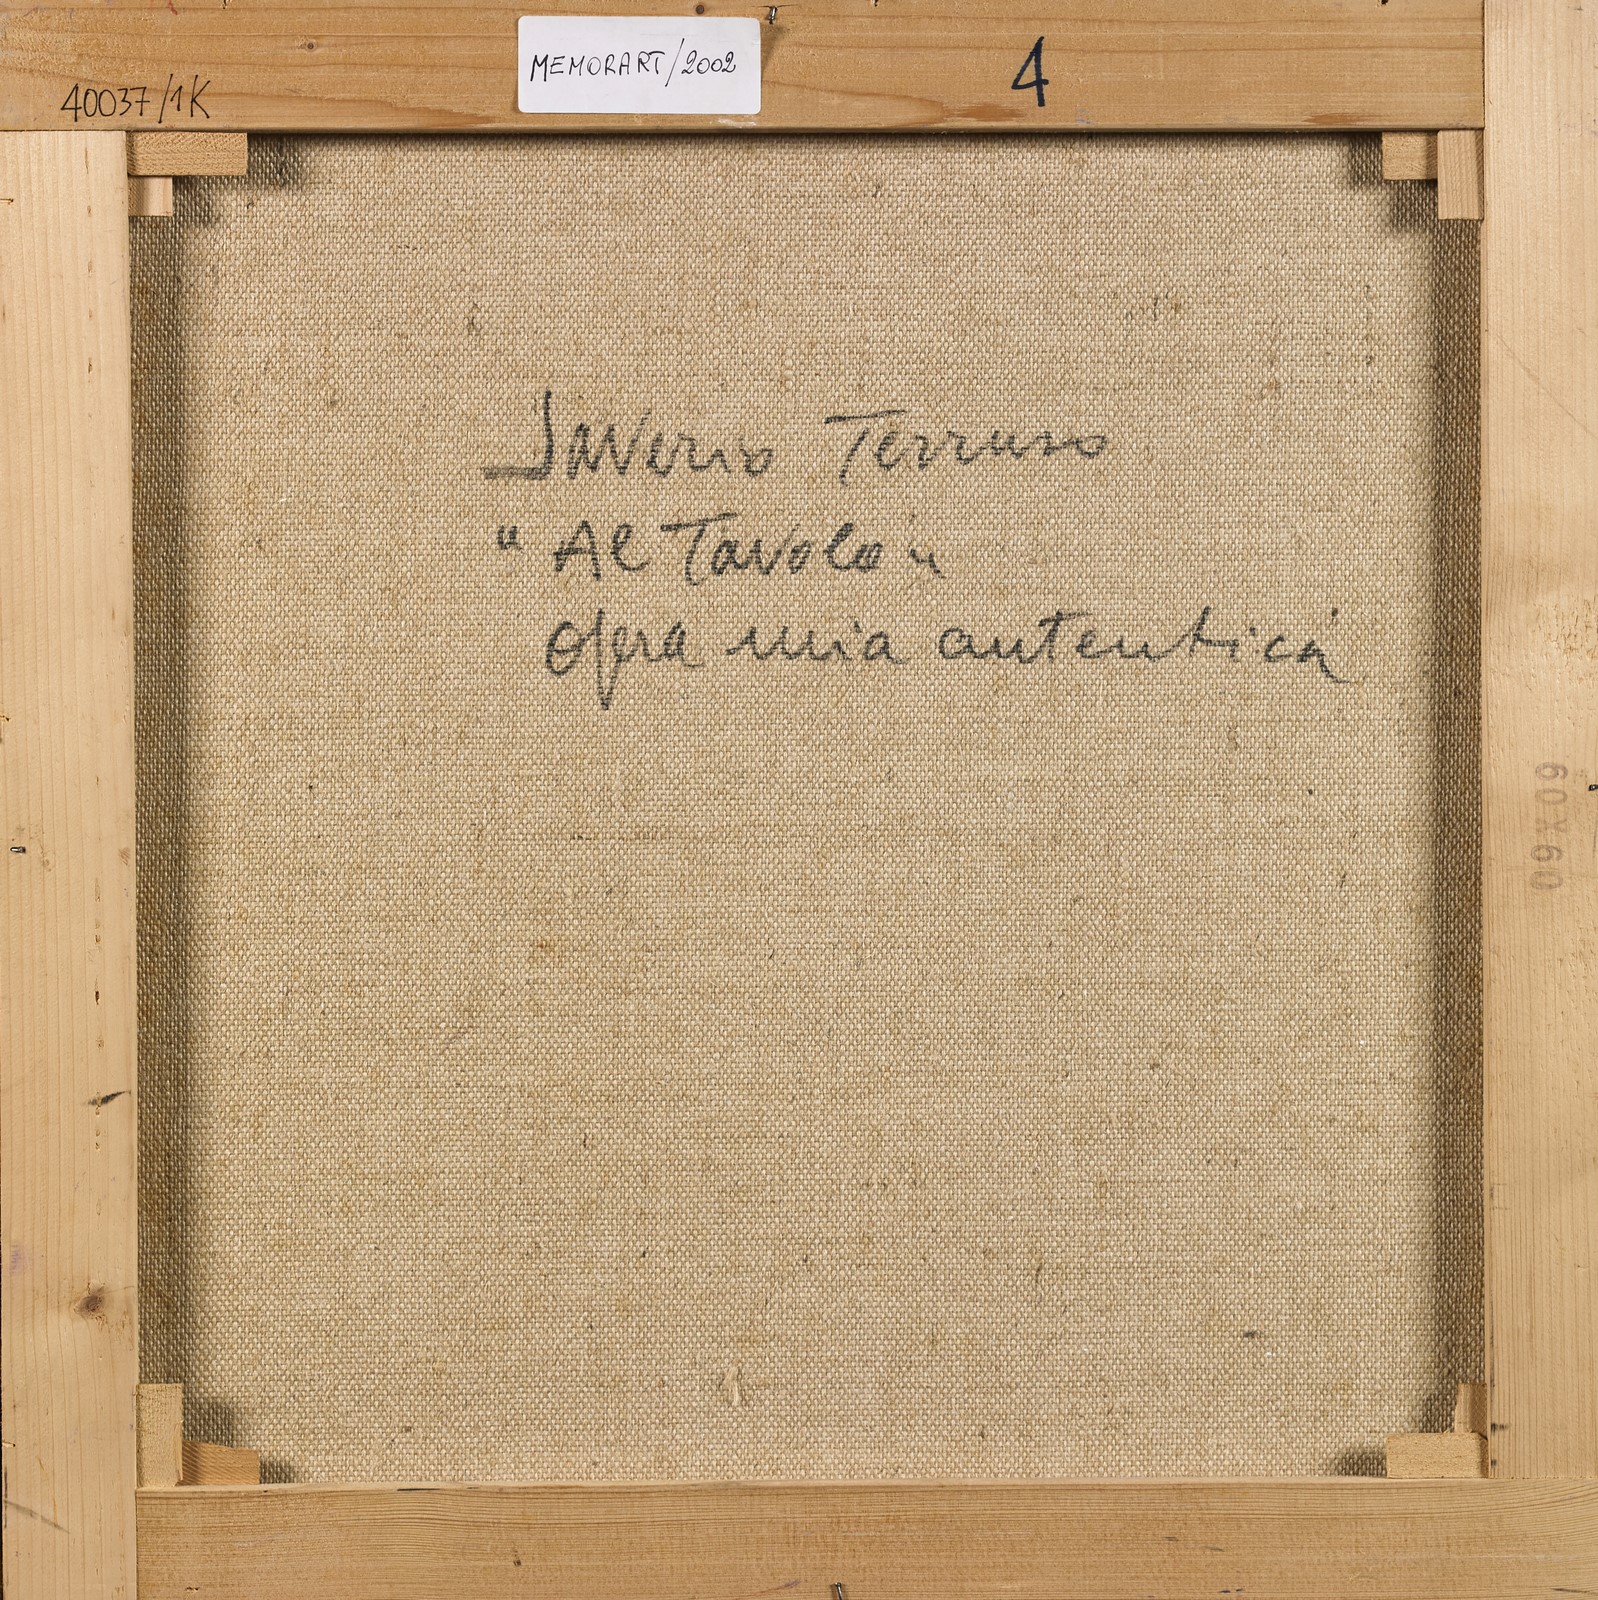 MEMORART/2002
4
40037/1K
Saverio Terruso
"Al Tavolo"
opera mia autentica
60X60